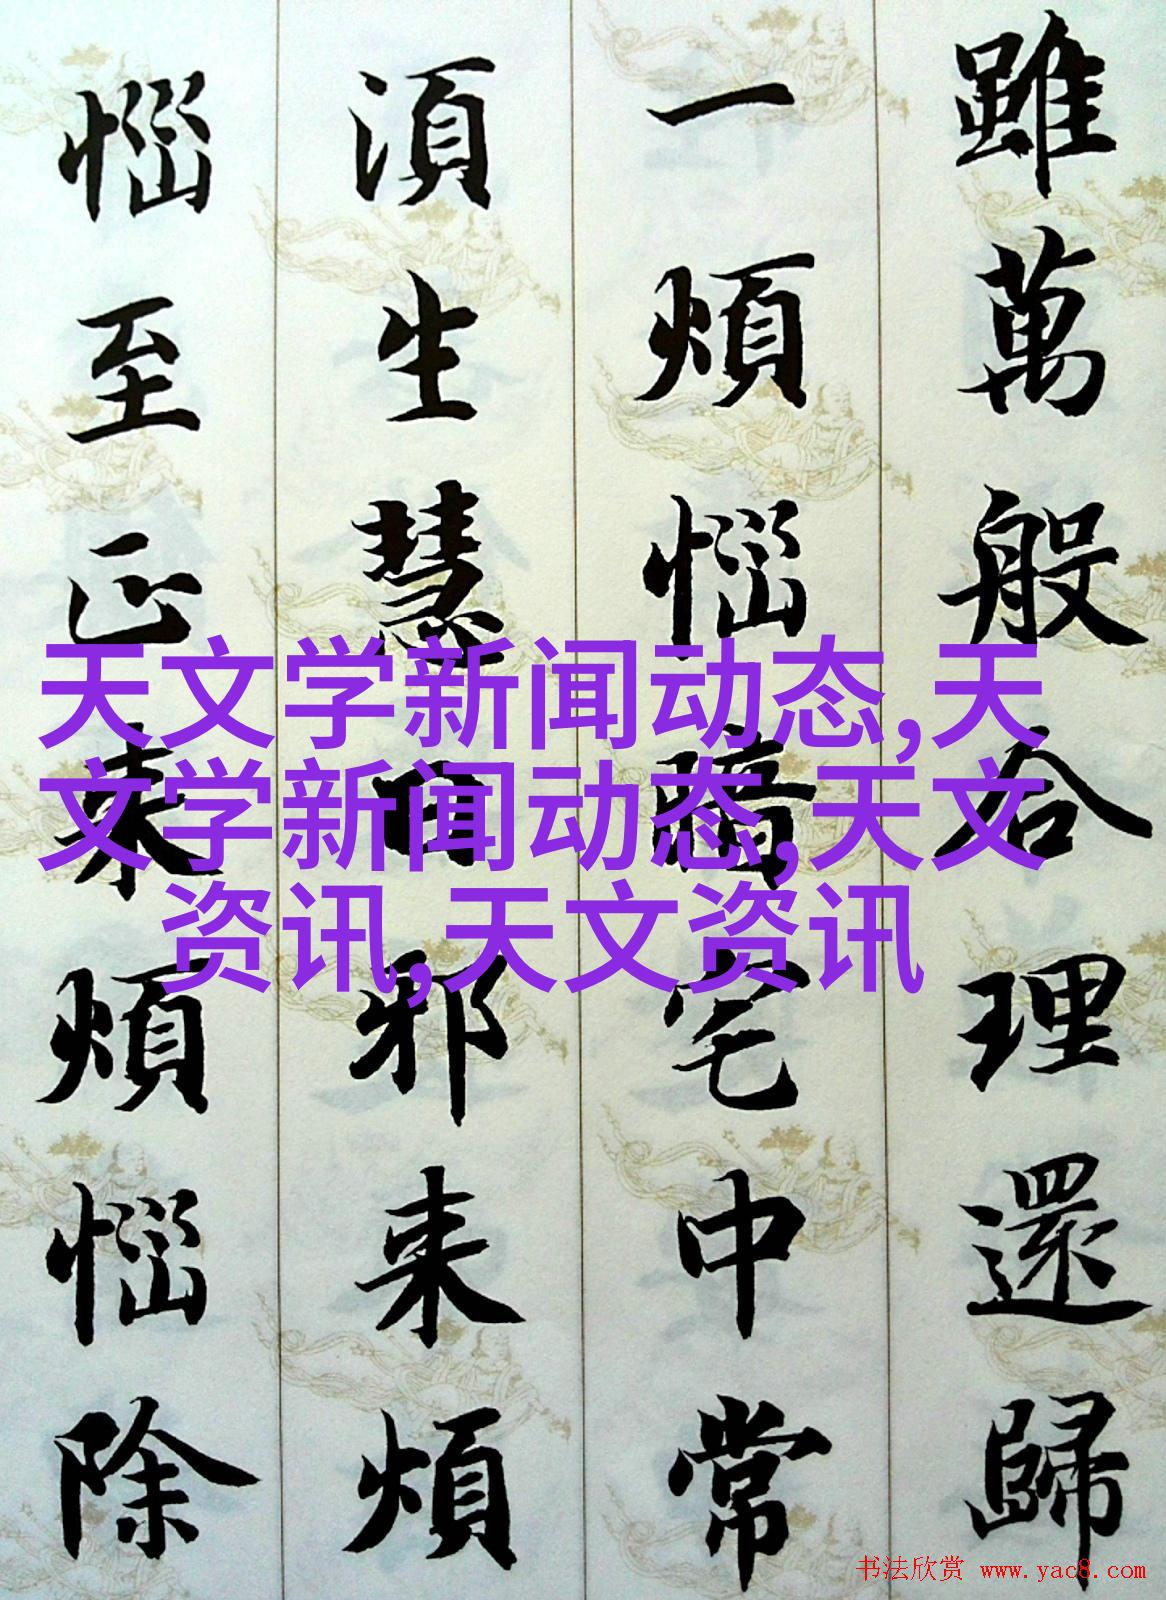 雖萬般合理還歸
一煩惱暗宅中常
湏生慧日邪来煩
惱至正来煩惱除
天文学新闻动态,天
文学新闻动态,天文
资讯,天文资讯
书法欣赏 www.yac8.com